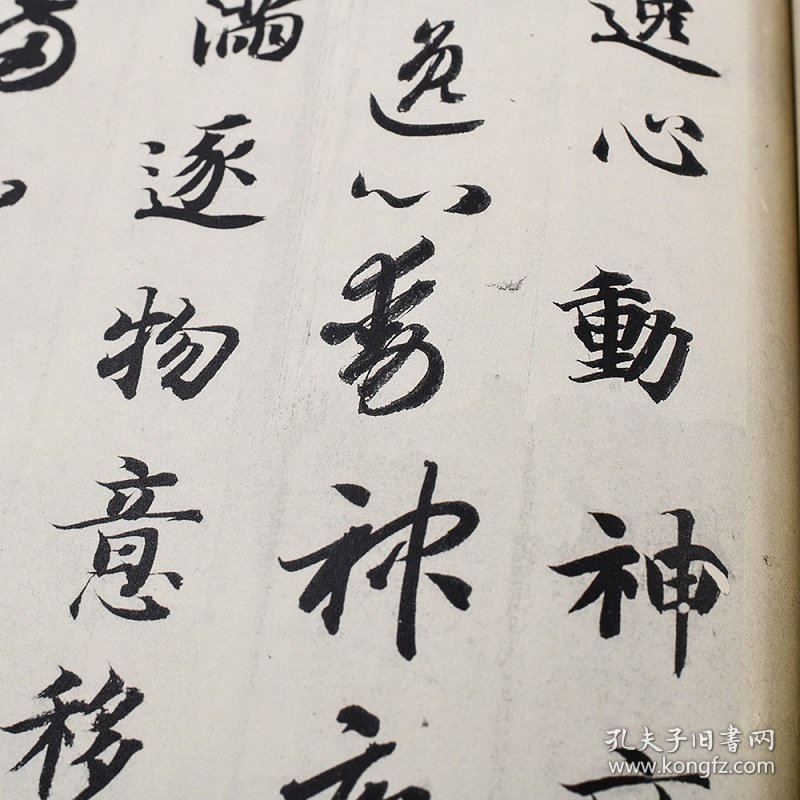 逸心動神
逸心動神疲
滿逐物意移
孔夫子旧書网
www.kongfz.com